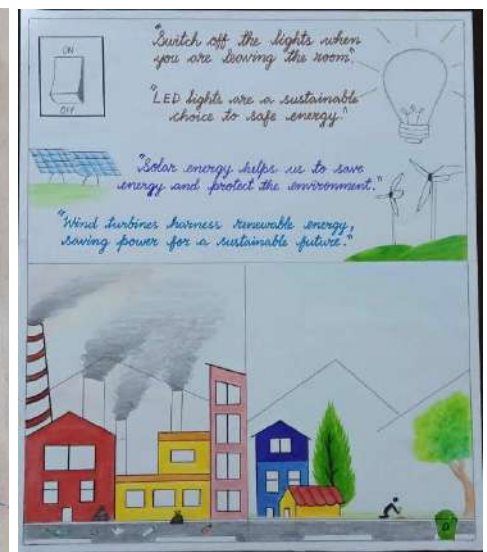 ON
OFF
"Switch off the lights when
you are leaving the room."
"LED lights are a sustainable
choice to safe energy."
"Solar energy helps us to save
energy and protect the environment."
"Wind turbines harness renewable energy,
saving power for a sustainable future."